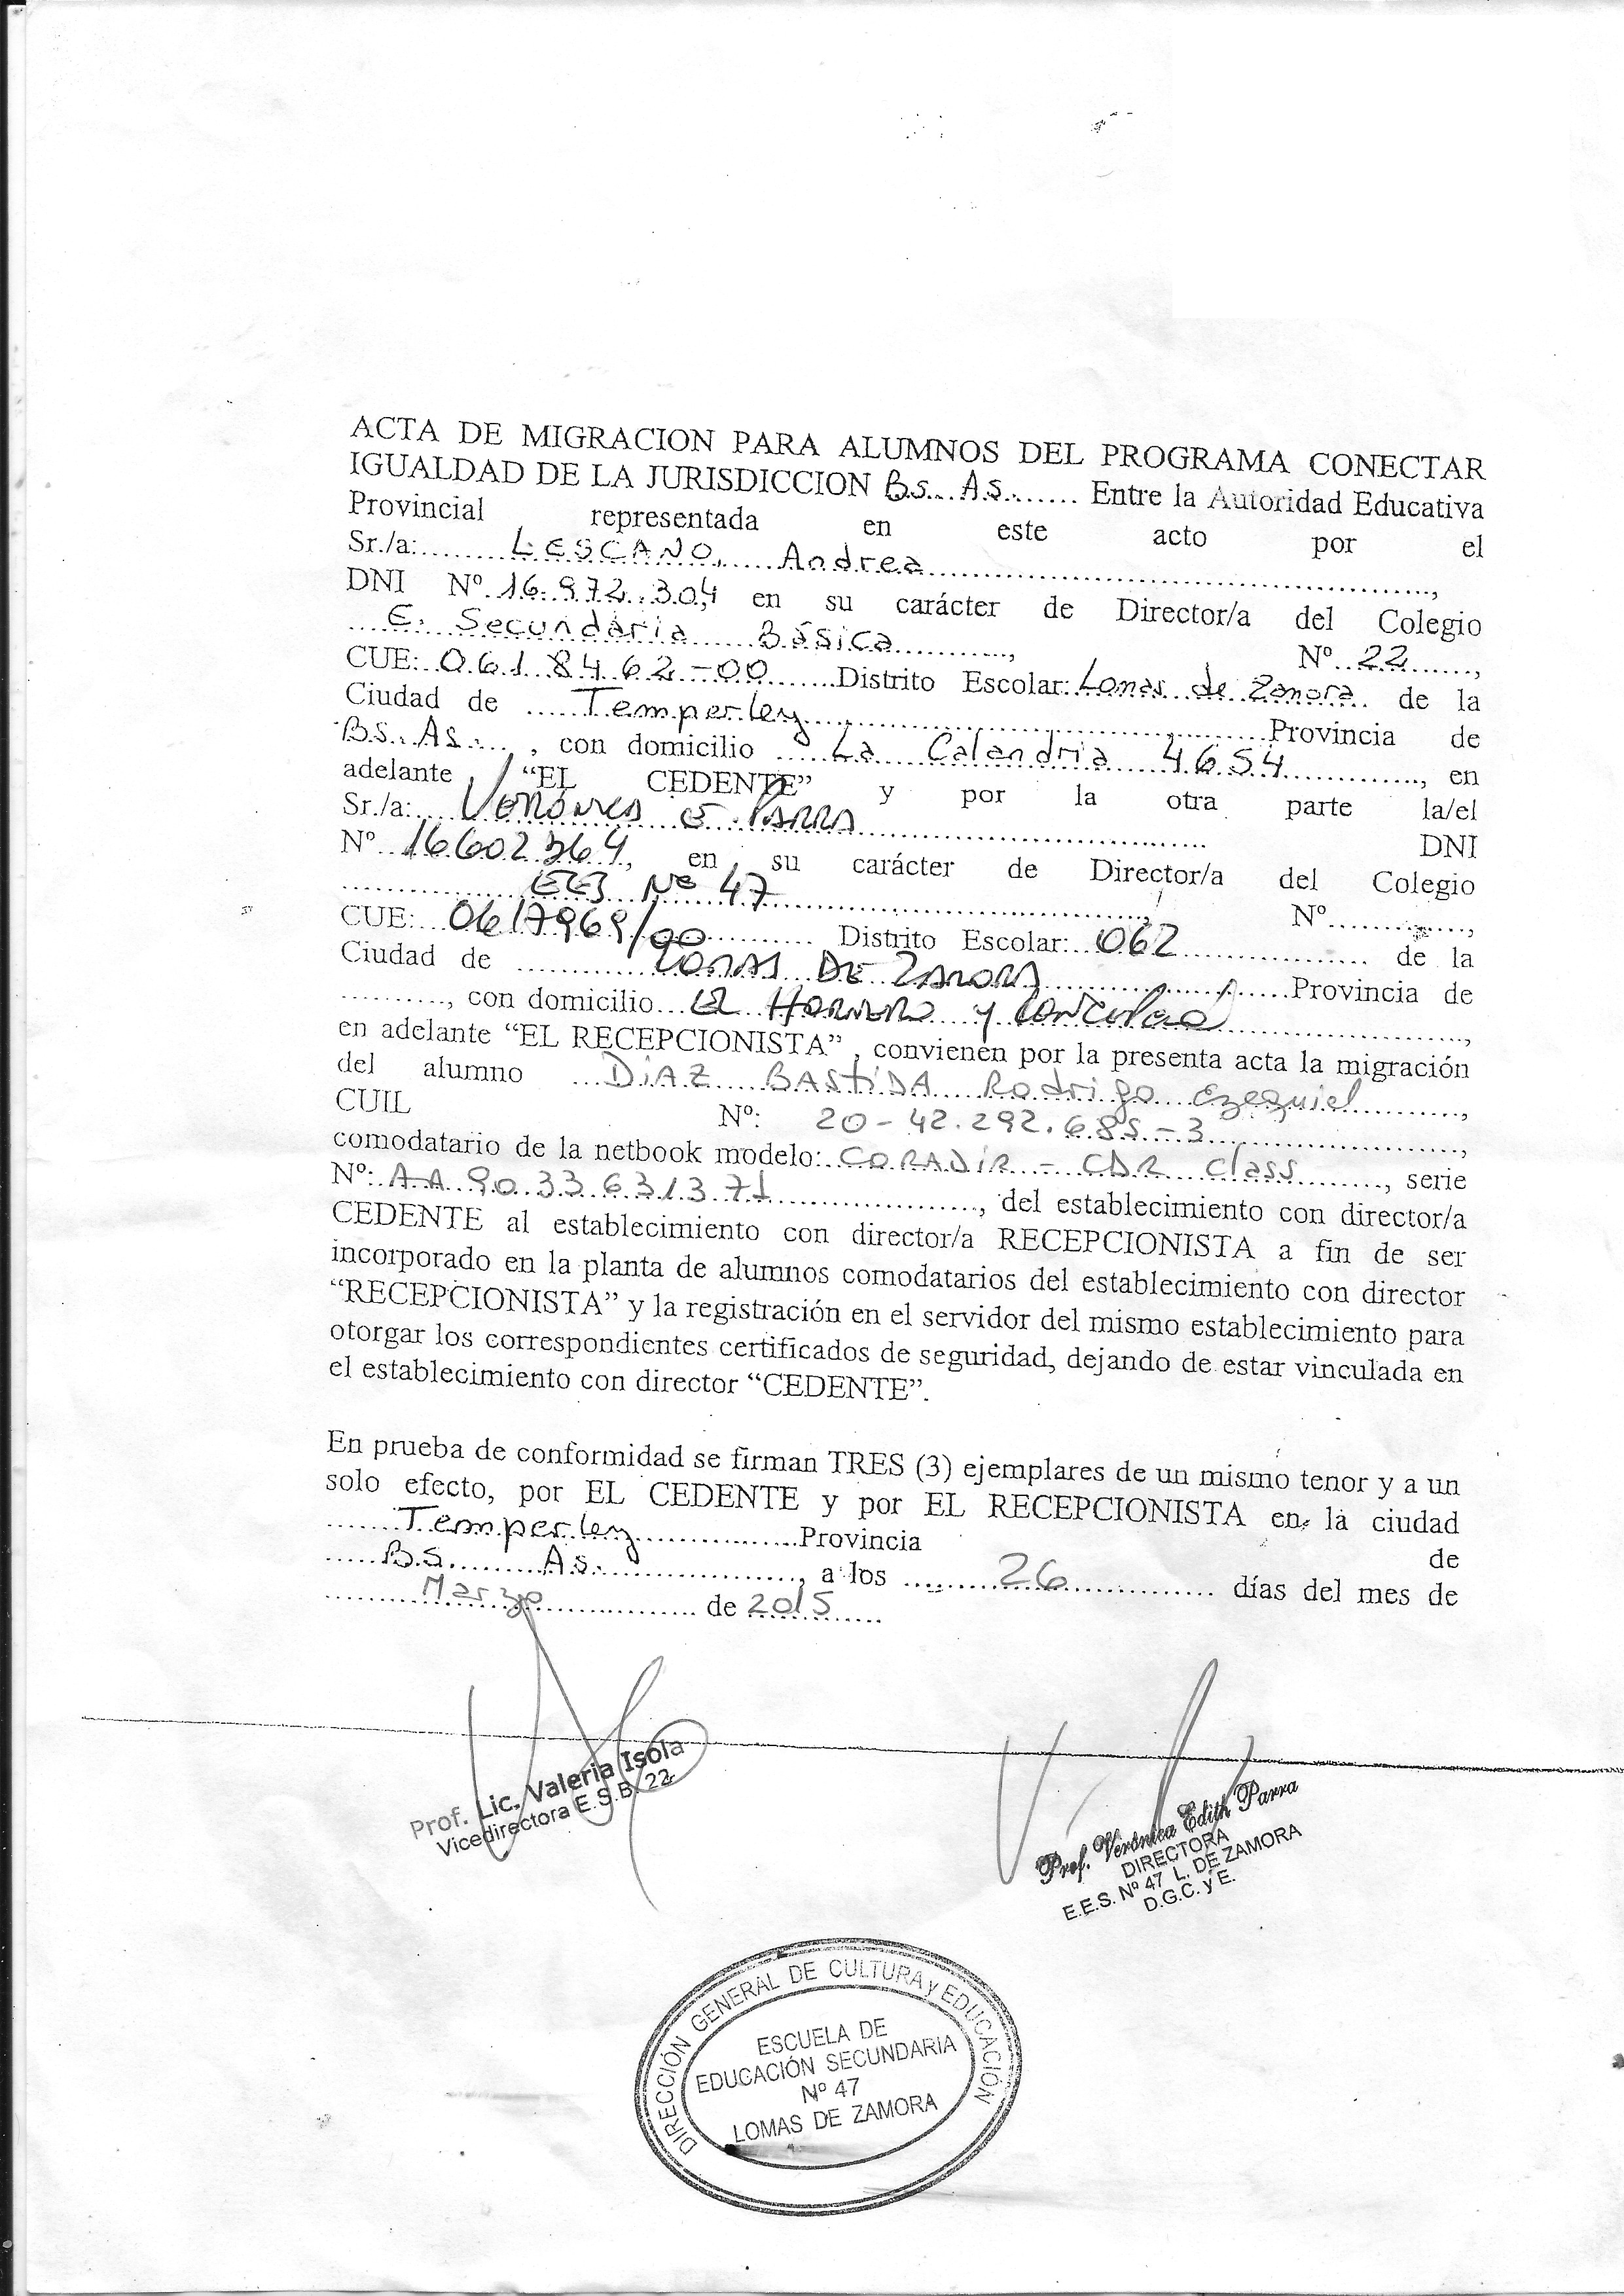 ACTA DE MIGRACION PARA ALUMNOS DEL PROGRAMA CONECTAR
IGUALDAD DE LA JURISDICCION Bs. As. Entre la Autoridad Educativa
Provincial representada en este acto por el
Sr./a: LESCANO, Andrea,
DNI Nº 16.972.304, en su carácter de Director/a del Colegio
E. Secundaria Básica, Nº 22,
CUE: 0618462-00 Distrito Escolar: Lomas de Zamora de la
Ciudad de Temperley Provincia de
Bs. As., con domicilio La Calandria 4654, en
adelante "EL CEDENTE" y por la otra parte la/el
Sr./a: Verónica E Parra DNI
Nº 16602364, en su carácter de Director/a del Colegio
Nº 47, Nº,
CUE: 0617969/00 Distrito Escolar: 062 de la
Ciudad de LOMAS DE ZAMORA Provincia de
, con domicilio EL HORNERO Y
en adelante "EL RECEPCIONISTA", convienen por la presenta acta la migración
del alumno DIAZ BASTIDA Rodrigo Ezequiel,
CUIL Nº: 20-42.292.685-3,
comodatario de la netbook modelo: CORADIR - CDR Class, serie
Nº: AA9033631371, del establecimiento con director/a
CEDENTE al establecimiento con director/a RECEPCIONISTA a fin de ser
incorporado en la planta de alumnos comodatarios del establecimiento con director
"RECEPCIONISTA" y la registración en el servidor del mismo establecimiento para
otorgar los correspondientes certificados de seguridad, dejando de estar vinculada en
el establecimiento con director "CEDENTE".
En prueba de conformidad se firman TRES (3) ejemplares de un mismo tenor y a un
solo efecto, por EL CEDENTE y por EL RECEPCIONISTA en la ciudad
Temperley Provincia de
Bs. As., a los 26 días del mes de
Marzo de 2015
Prof. Lic. Valeria Isola
Vicedirectora E.S.B. 22
Prof. Verónica Edith Parra
DIRECTORA
E.E.S. Nº 47 L. DE ZAMORA
D.G.C. y E.
DIRECCIÓN GENERAL DE CULTURA y EDUCACIÓN
ESCUELA DE
EDUCACIÓN SECUNDARIA
Nº 47
LOMAS DE ZAMORA